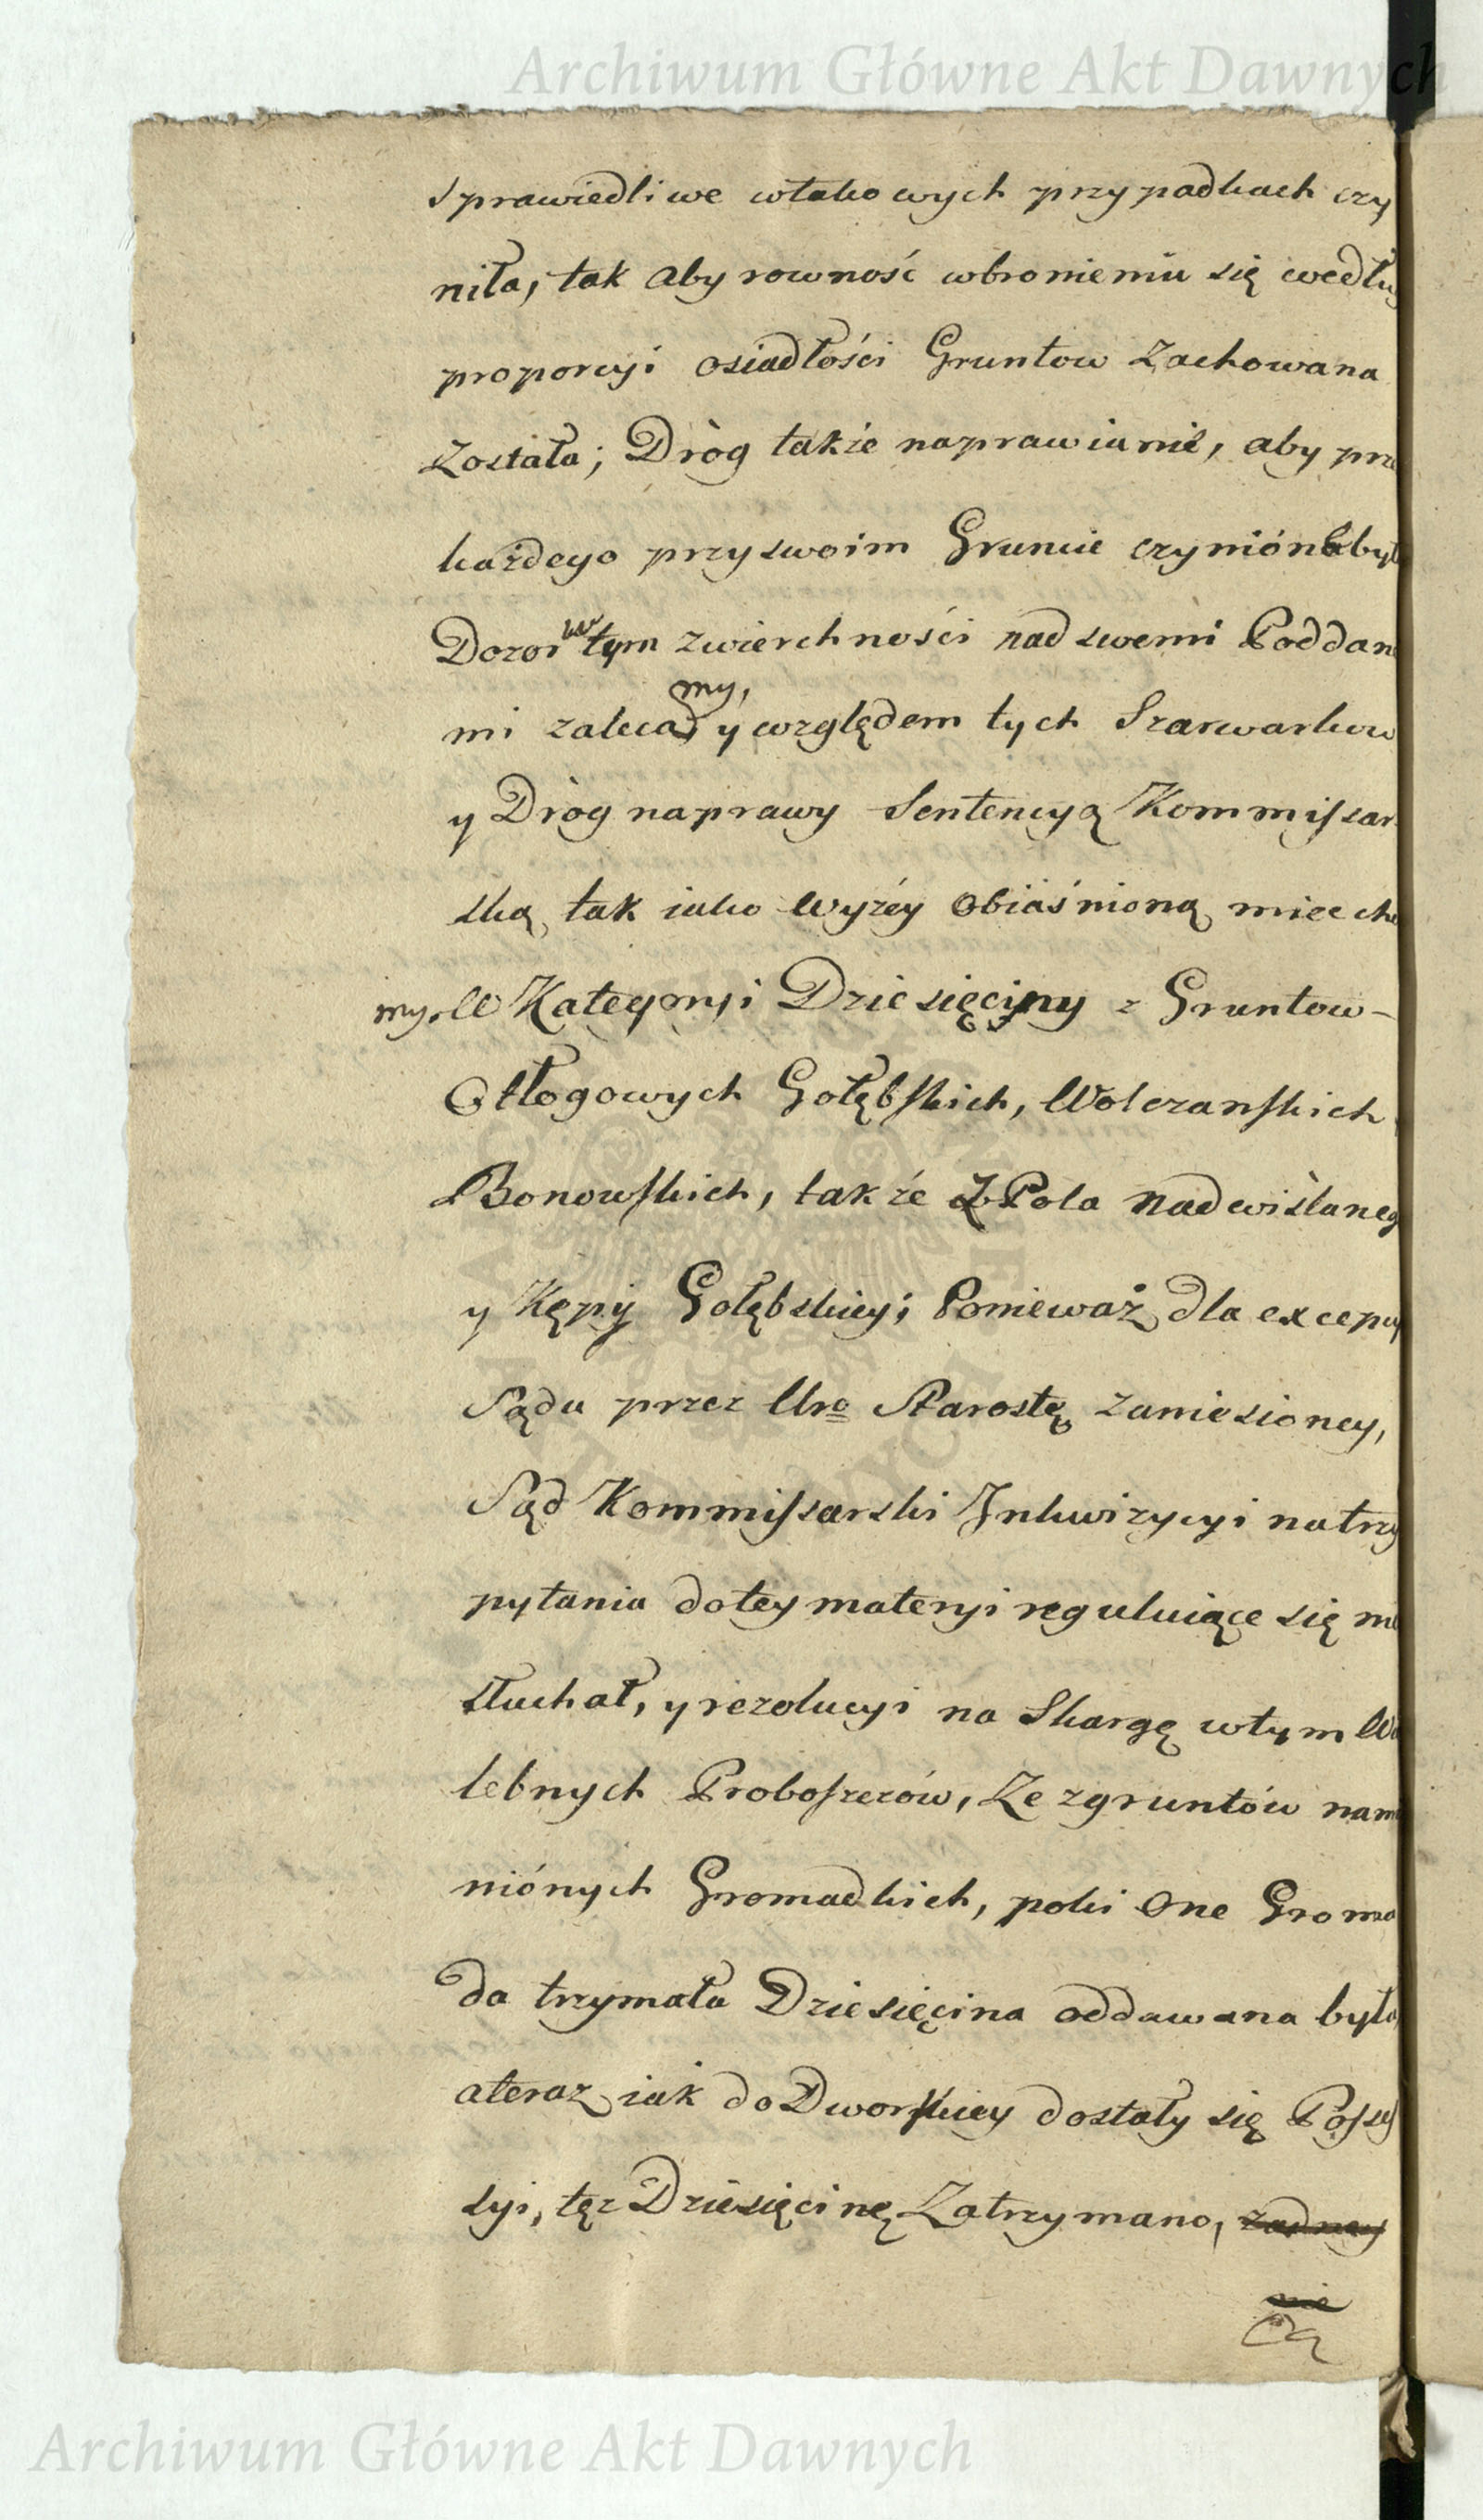 Archiwum Główne Akt Dawnych
sprawiedliwe wtakowych przypadkach czy
niła, tak aby rowność wbronieniu się wedłu
proporcyi osiadłości Gruntow zachowana
została; Dròg także naprawianie, aby prze
każdego przyswoim Gruncie czynióne był
Dozor w tym zwierchności nad swemi Poddan
mi zalecamy, y względem tych Szarwarkow
y Dròg naprawy Sentencyą Kommissar
ską, tak iako wyżéy obiaśnioną mieć chc
my. W Kategoryi Dziesięciny z Gruntow
Otłogowych Gołębskich, Wolczanskich
Bonowskich, także z Pola Nadwiślaneg
y Kępy Gołębskiey; Ponieważ dla excepcy
Sądu przez Uro Starostę zaniesioney,
Sąd Kommissarski Inkwizycyi natrzy
pytania dotey materyi reguluiące się nie
słuchał, y rezolucyi na Skargę wtym We
lebnych Proboszczów, Ze zgruntów nam
niónych Gromadkich, poki One Groma
da trzymała Dziesięcina oddawana była
ateraz iak do Dworskiey dostały się Posses
syi, tęz Dziesięcinę Zatrzymano, żadney
nie
Archiwum Główne Akt Dawnych